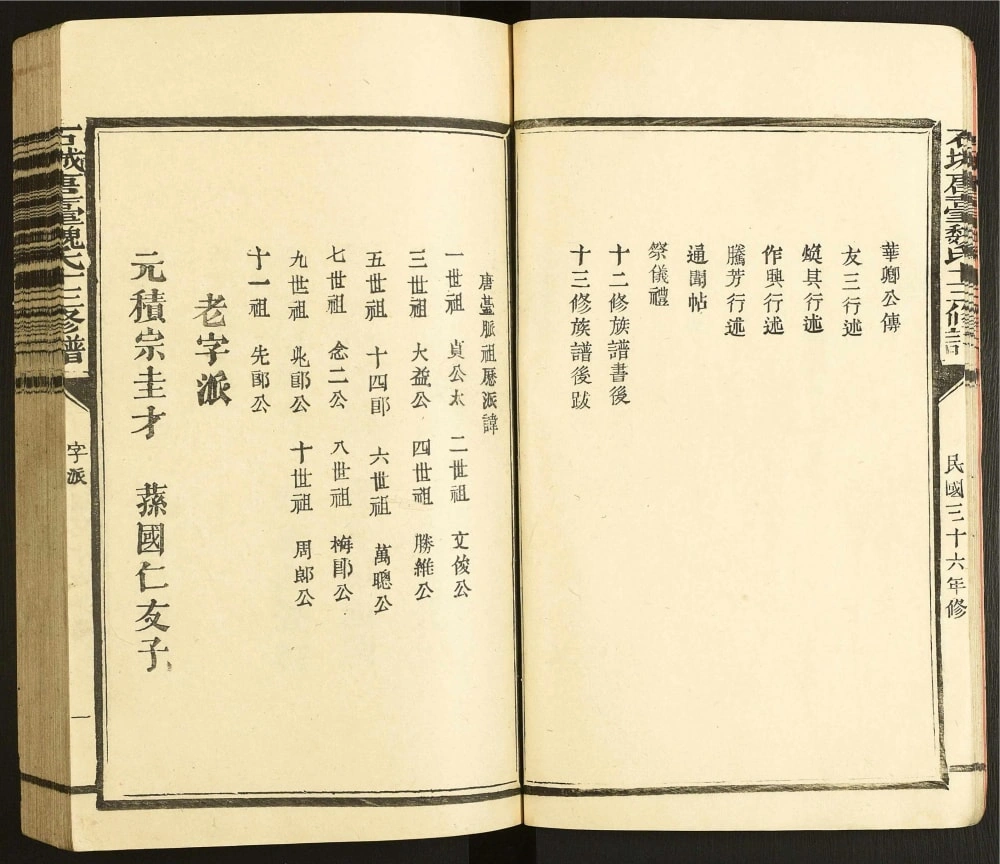 石城唐臺魏氏十三修譜
民國三十六年修
華卿公傳
友三行述
煥其行述
作興行述
騰芳行述
通聞帖
祭儀禮
十二修族譜書後
十三修族譜後跋
唐臺脈祖歷派諱
一世祖 貞公太 二世祖 文俊公
三世祖 大益公 四世祖 勝維公
五世祖 十四郎 六世祖 萬聰公
七世祖 念二公 八世祖 梅郎公
九世祖 兆郎公 十世祖 周郎公
十一祖 先郎公
老字派
元積宗圭才 蓀國仁友子
石城唐臺魏氏十三修譜
字派
一